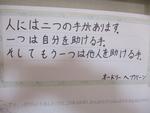 人には二つの手があります。
一つは自分を助ける手。
そしてもう一つは他人を助ける手。
オードリー ヘップバーン